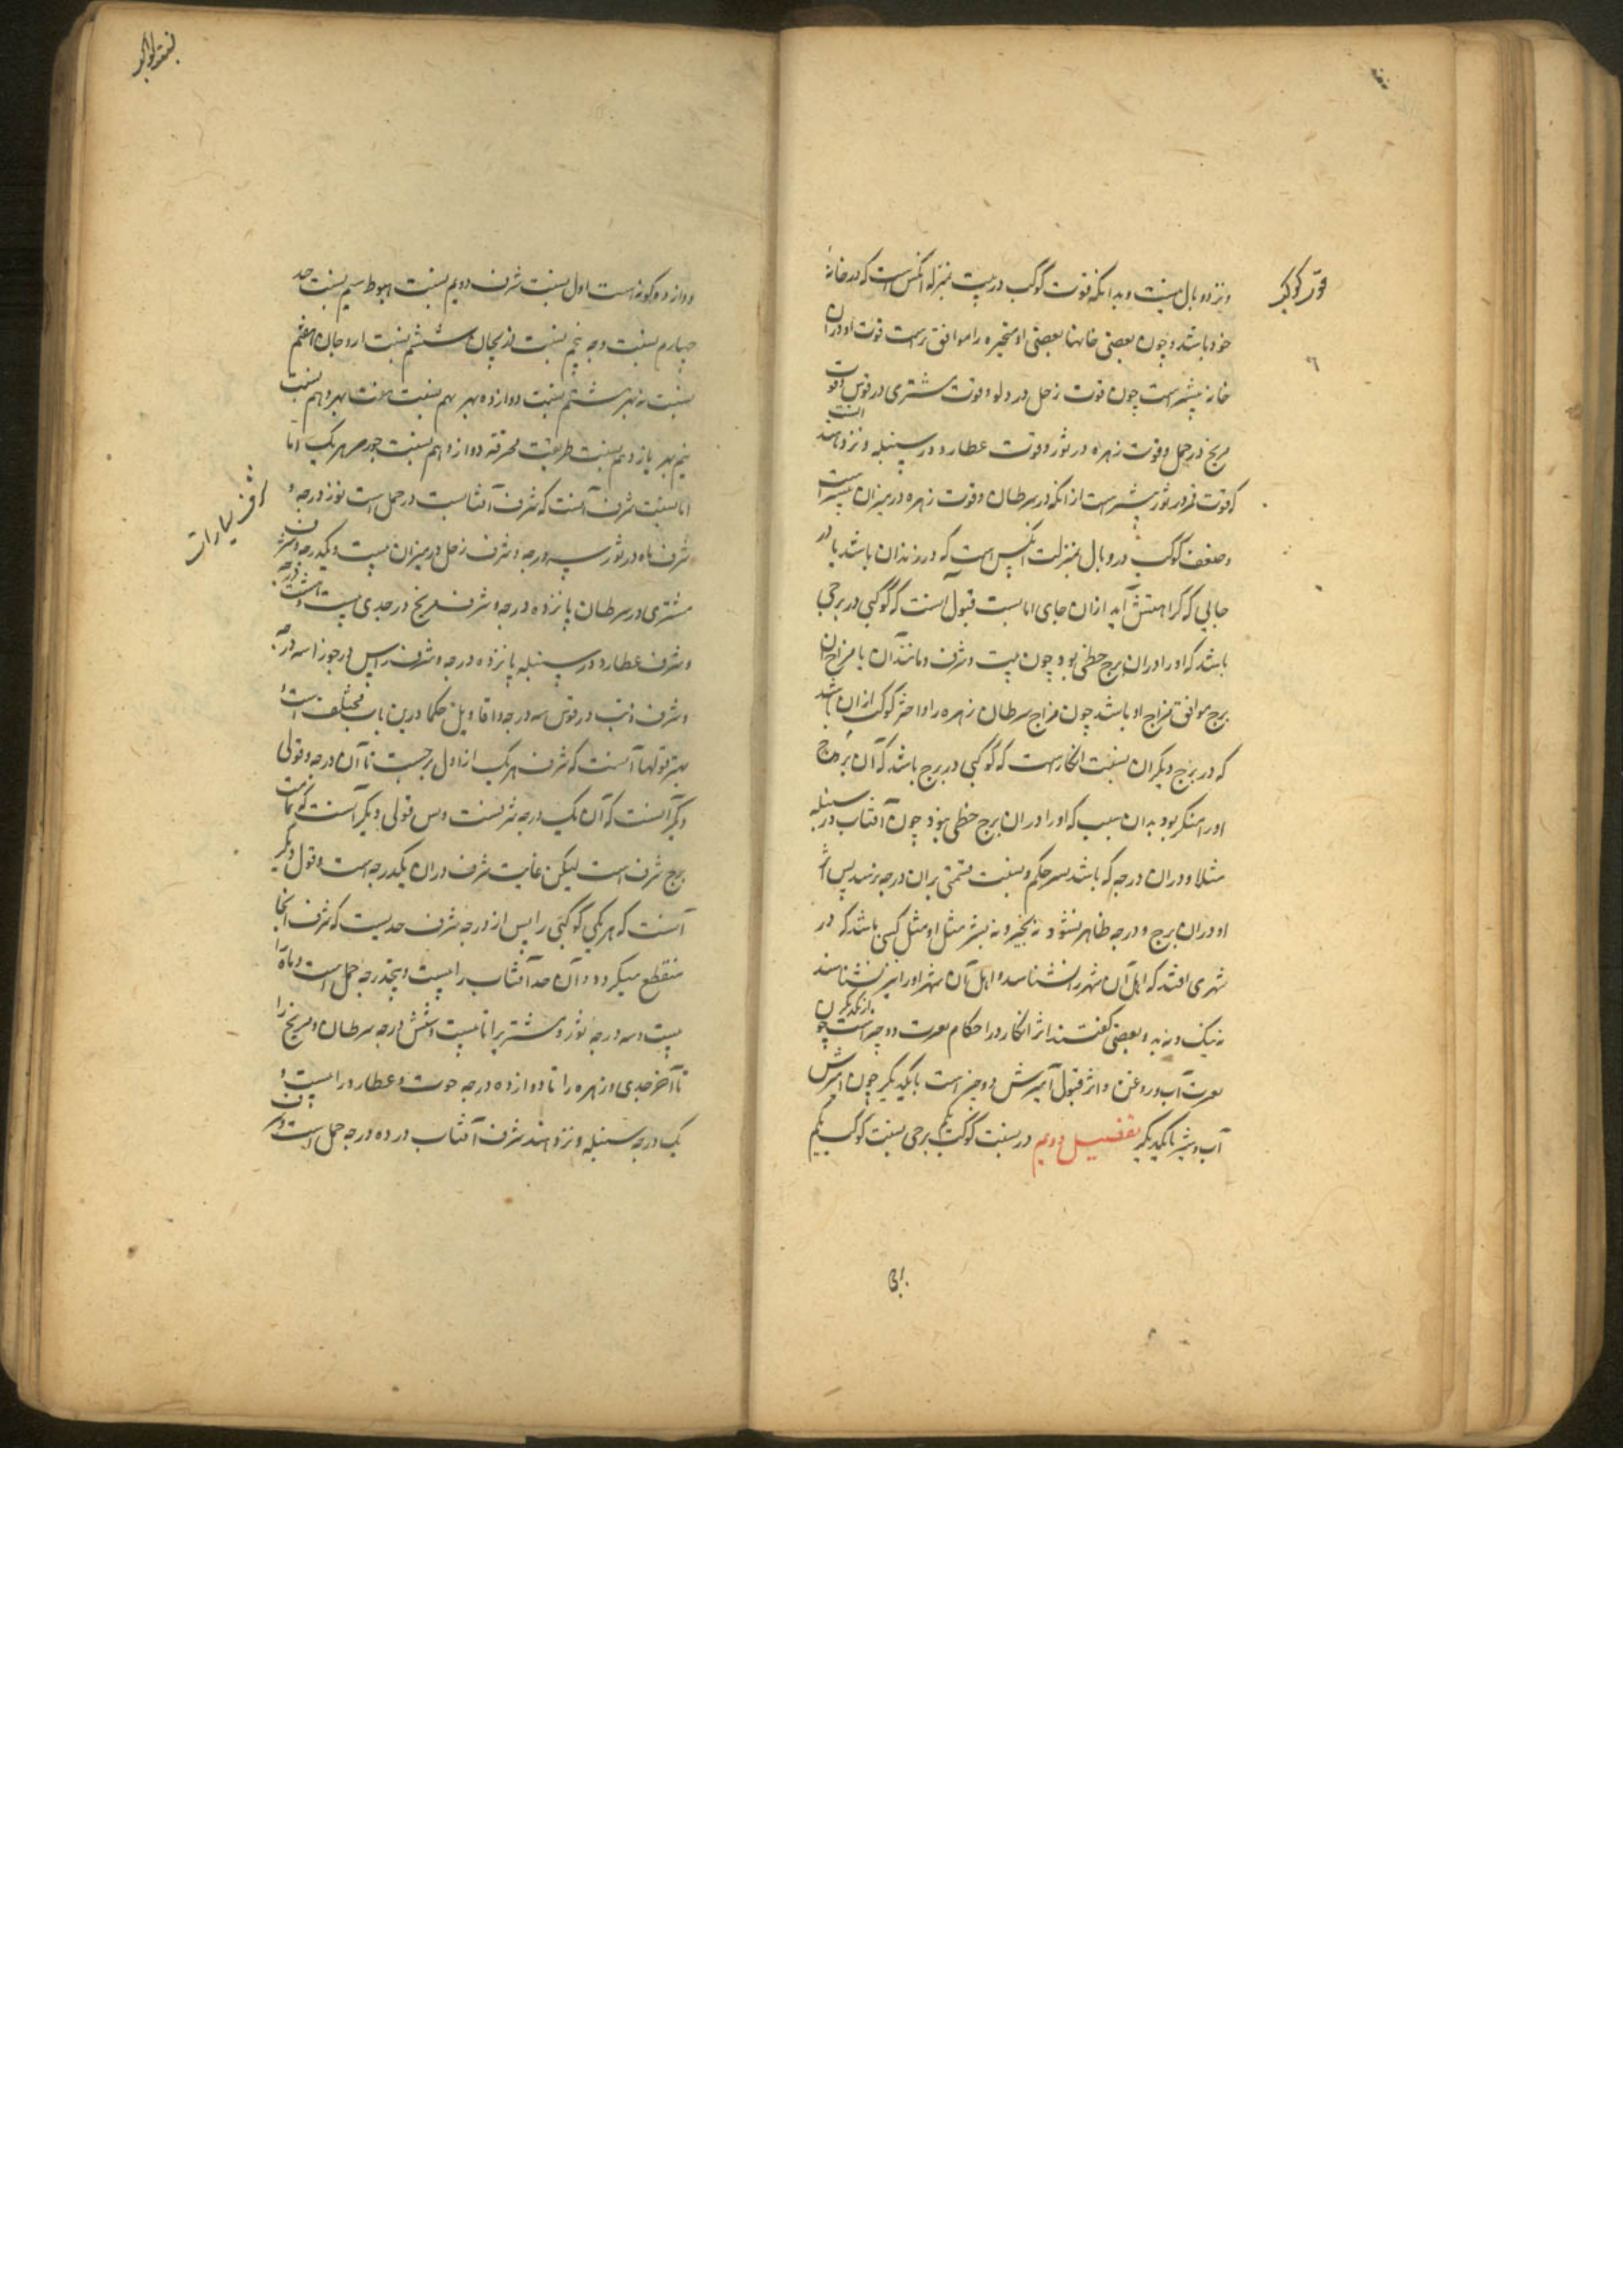 قوت کوکب
و نزد وبال نیست و بدانکه قوت کوکب در بیت بمنزله آنکس است که در خانه
خود باشد و چون بعضی خانها بعضی از متحیره را موافق‌تر است قوت او در آن
خانه بیشتر است چون قوت زحل در دلو و قوت مشتری در قوس و قوت
مریخ در حمل و قوت زهره در ثور و قوت عطارد در سنبله و نزد هند آنست
که قوت قمر در ثور بیشتر است از آنکه در سرطان و قوت زهره در میزان بیشتر است
و ضعف کوکب در وبال بمنزلت آنکس است که در زندان باشد یا در
جایی که کراهتش آید از آن جای اما نسبت قبول آنست که کوکبی در برجی
باشد که او را در آن برج حظی بود چون بیت و شرف و مانند آن یا مزاج آن
برج موافق مزاج او باشد چون مزاج سرطان زهره را و احتراز کوکب از آن باشد
که در برج دیگر آن نسبت انکار است که کوکبی در برج باشد که آن برج
او را منکر بود بدان سبب که او را در آن برج حظی نبود چون آفتاب در سنبله
مثلا و در آن درجه که باشد بسر حکم و نسبت قسمتی بر آن درجه نرسد پس اثر
او در آن برج و درجه ظاهر نشود نه بخیر و نه بشر مثل او مثل کسی باشد که در
شهری افتد که اهل آن شهر را نشناسد و اهل آن شهر او را نیز نشناسند
نه نیک و نه بد و بعضی گفتند اثر انکار در احکام نفرت دو چیز است از یکدیگر چون
نفرت آب و روغن و اثر قبول آمیزش دو چیز است با یکدیگر چون آمیزش
آب و شیر با یکدیگر تفصیل دویم در نسبت کوکب برجی نسبت کوکب
دوازده کونه است اول نسبت شرف دویم نسبت هبوط سیم نسبت حد
چهارم نسبت وجه پنجم نسبت دریجان ششم نسبت اردجان هفتم
نسبت نه بهر هشتم نسبت دوازده بهر نهم نسبت هفت بهر دهم نسبت
نیم بهر یازدهم نسبت طریقت محرقه دوازدهم نسبت جوزهر هر یک اما
شرف سیارات
اما نسبت شرف آنست که شرف آفتاب است در حمل است نوزده درجه و
شرف ماه در ثور سه درجه و شرف زحل در میزان بیست و یکدرجه و شرف
مشتری در سرطان پانزده درجه و شرف مریخ در جدی بیست و هشت درجه
و شرف عطارد در سنبله پانزده درجه و شرف راس در جوزا سه درجه
و شرف ذنب در قوس سه درجه و اقاویل حکما درین باب مختلف است
بهتر قولها آنست که شرف هر یک از اول برجست تا آن درجه و قولی
دیگر آنست که آن یک درجه شرفست و بس قولی دیگر آنست که تمامت
برج شرف است لیکن غایت شرف در آن یکدرجه است و قول دیگر
آنست که هر یکی کوکبی را پس از درجه شرف حدیست که شرف آنجا
منقطع میگردد و آن حد آفتاب را بیست و پنجدرجه حمل است و ماه را
بیست و سه درجه ثور و مشتریرا تا بیست و شش درجه سرطان و مریخ را
تا آخر جدی و زهره را تا دوازده درجه حوت و عطارد را بیست و
یک درجه سنبله و نزد هند شرف آفتاب در ده درجه حمل است و شرف